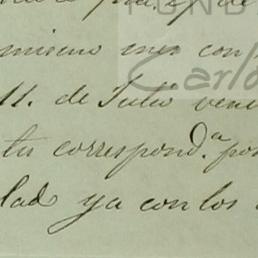 FUND
mismo mes con
Carlo
11. de Julio ven
tu correspond.ª por
lad ya con los